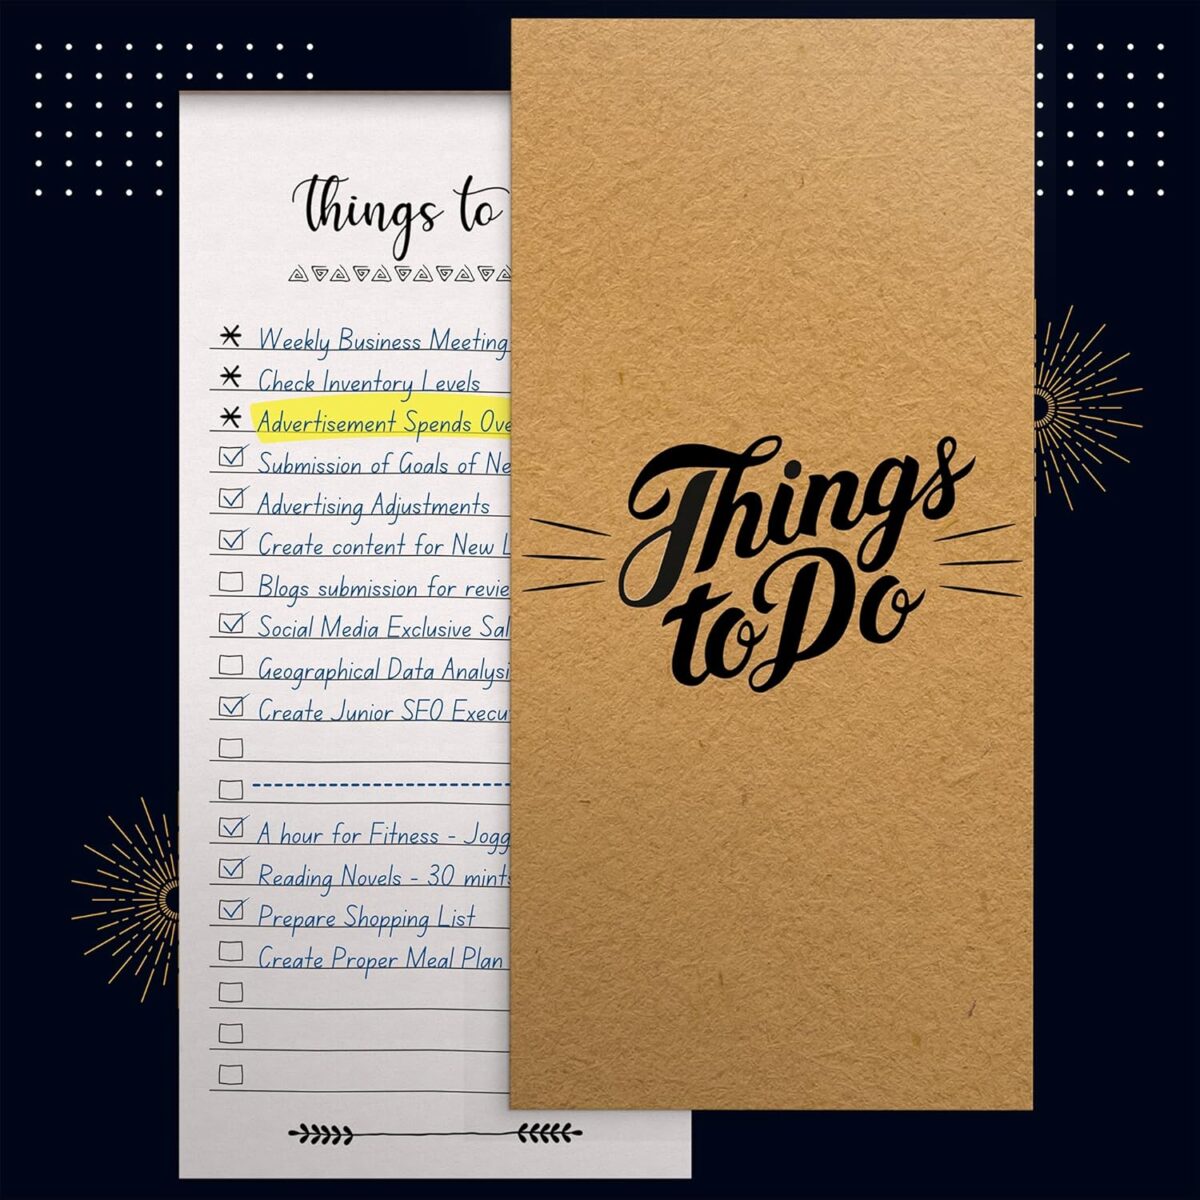 things to
Weekly Business Meeting
Check Inventory Levels
Advertisement Spends Ove
Submission of Goals of Ne
Advertising Adjustments
Create content for New L
Blogs submission for revie
Social Media Exclusive Sal
Geographical Data Analysi
Create Junior SEO Execu
A hour for Fitness - Jogg
Reading Novels - 30 mints
Prepare Shopping List
Create Proper Meal Plan
Things
to Do